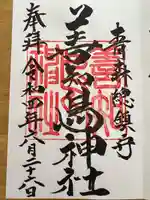 青森総鎮守
善知鳥神社
奉拝 令和四年八月二十八日